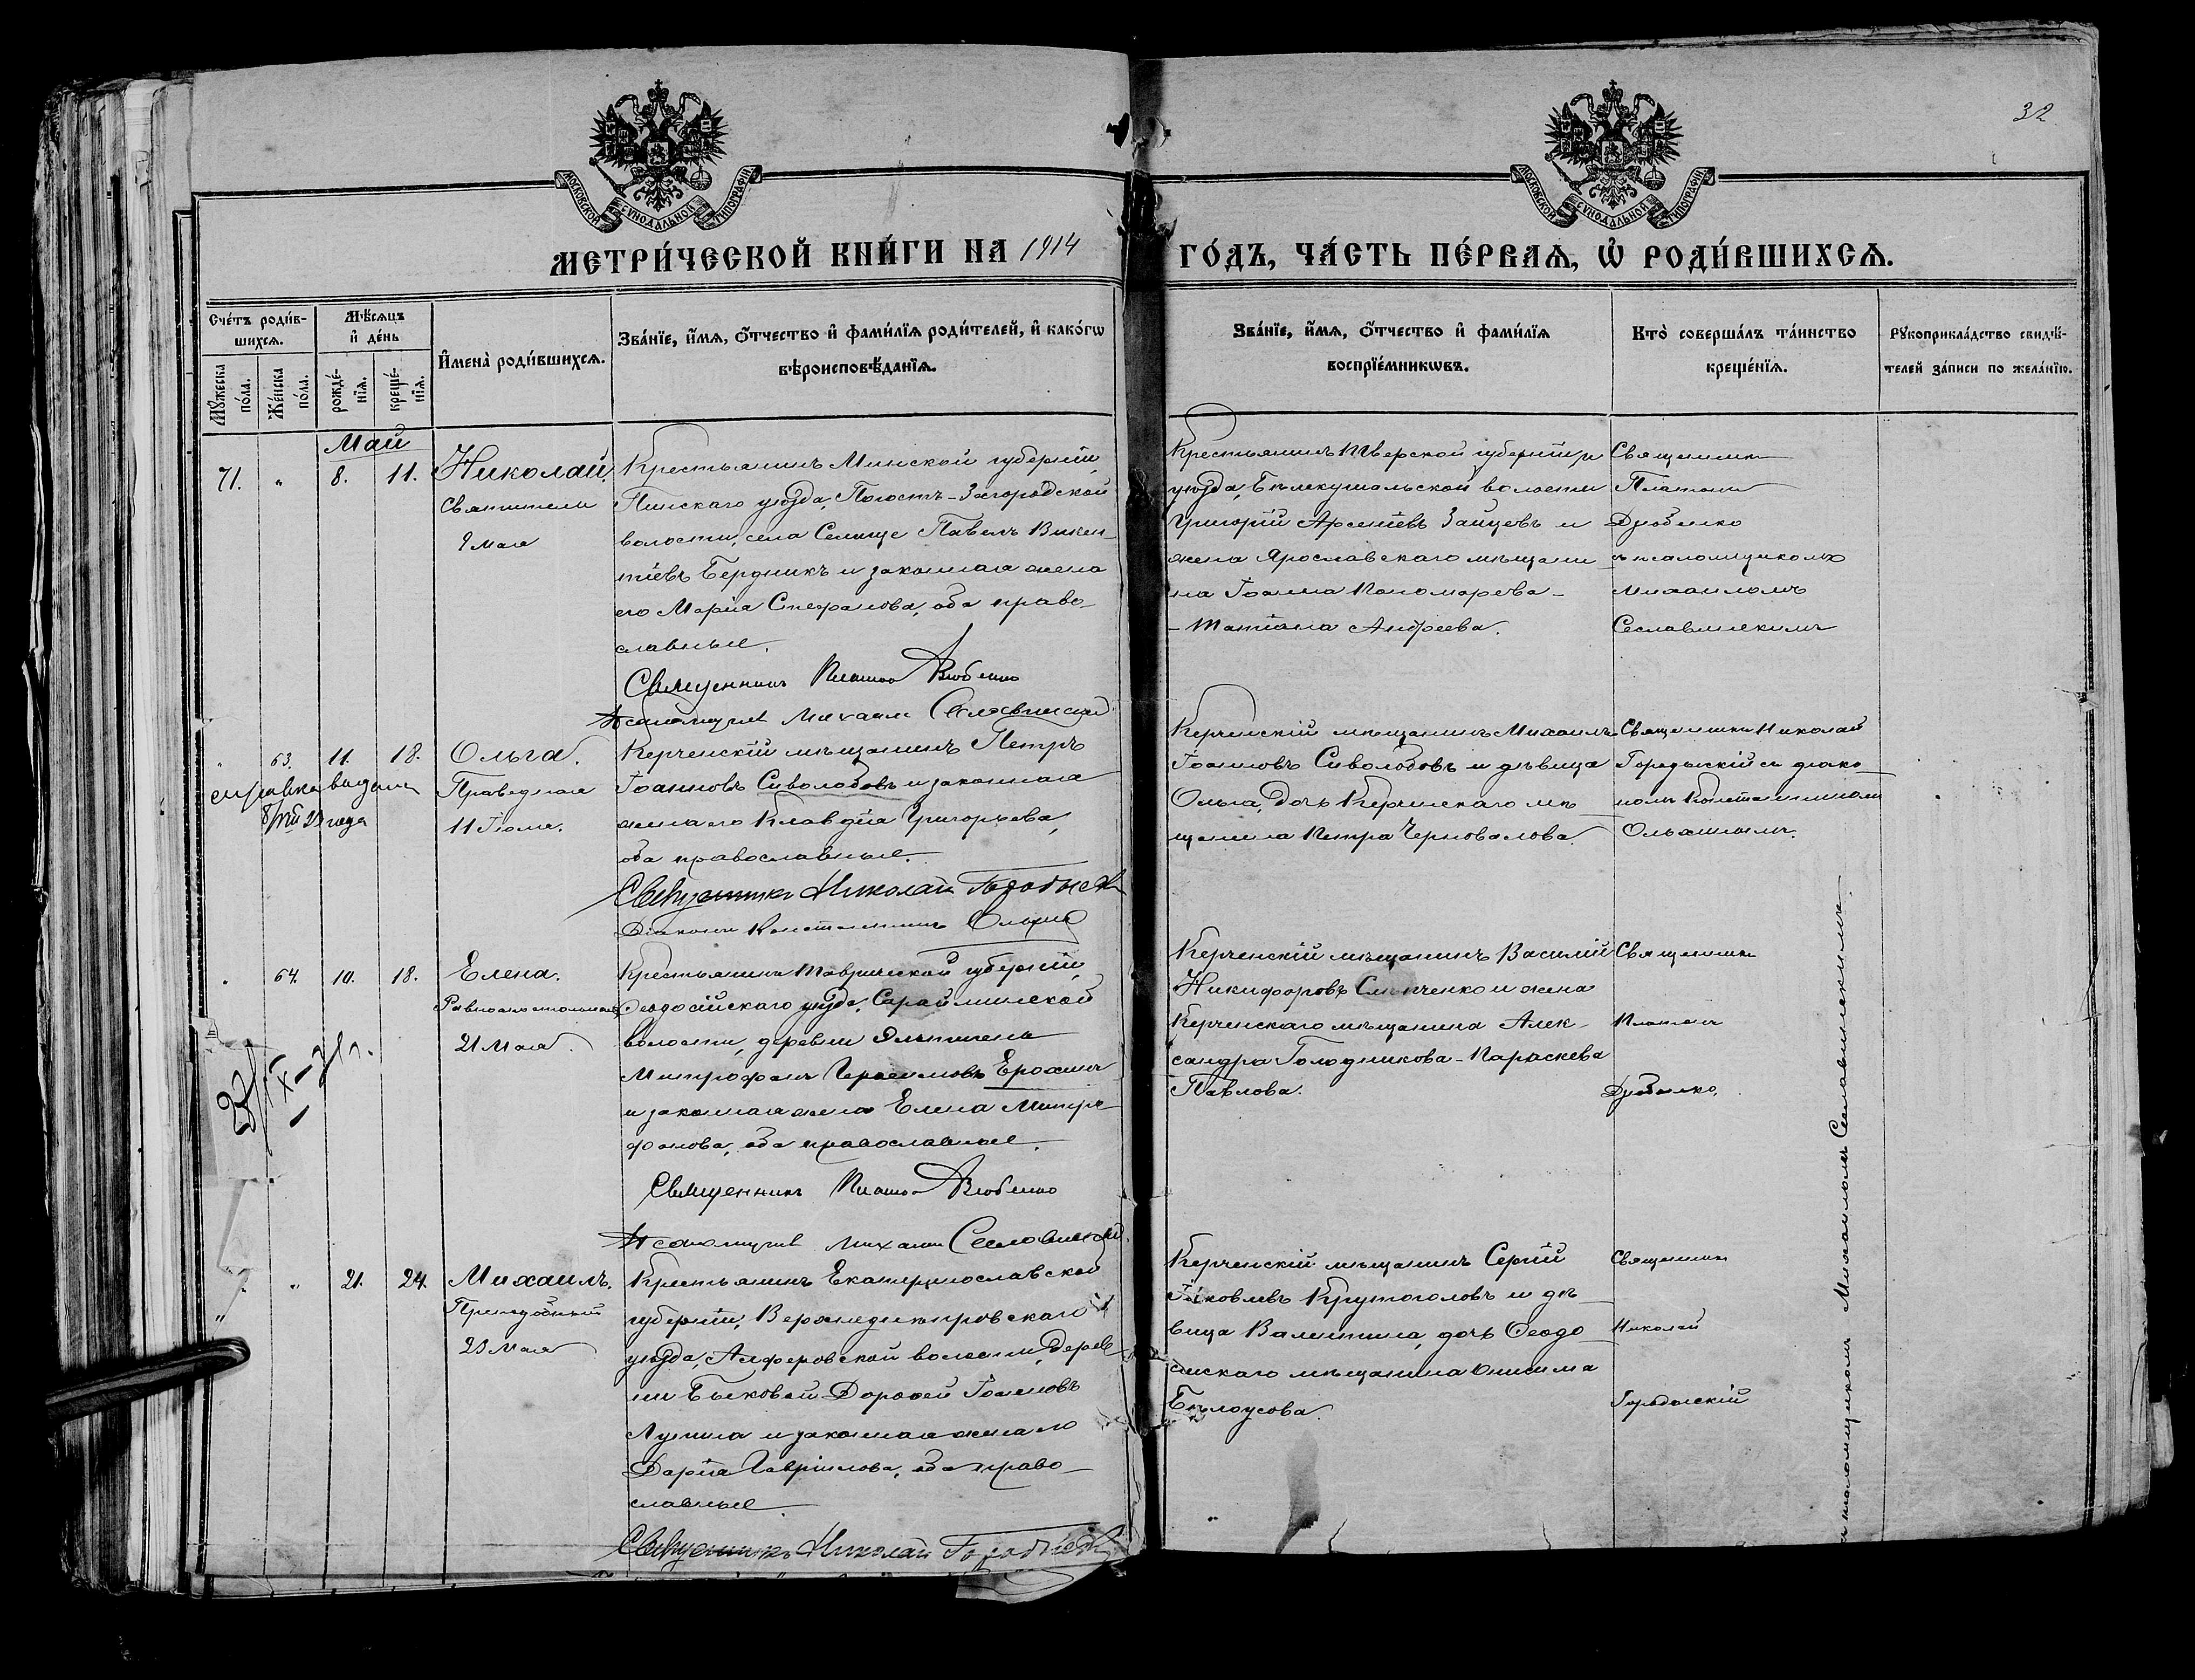 32
МОСКОВСКОЙ СѴНОДАЛЬНОЙ ТИПОГРАФІИ
МОСКОВСКОЙ СѴНОДАЛЬНОЙ ТИПОГРАФІИ
МЕТРИ́ЧЕСКОЙ КНИ́ГИ НА 1914 ГО́ДЪ, ЧА́СТЬ ПЕ́РВАѦ, Ѡ҆ РОДИ́ВШИХСѦ.
Сче́тъ роди́в-
шихсѧ.
Мꙋ́жеска
по́ла.
Же́нска
по́ла.
Мѣ́сѧцъ
и҆ де́нь
рожде́-
нїѧ.
креще́-
нїѧ.
И҆мена̀ роди́вшихсѧ.
Зва́нїе, и҆́мѧ, ѻ҆́тчество и҆ фами́лїѧ роди́телей, и҆ како́гѡ
вѣроисповѣ́данїѧ.
Зва́нїе, и҆́мѧ, ѻ҆́тчество и҆ фами́лїѧ
воспрїе́мникѡвъ.
Кто̀ соверша́лъ та́инство
креще́нїѧ.
Рꙋкоприкла́дство свидѣ́-
телей за́писи по жела́нїю.
Май
71. " 8. 11. Николай.
Святителя
9 мая
Крестьянинъ Минской губерніи,
Пинскаго уѣзда, Погостъ-Загородской
волости, села Селище Павелъ Викен-
тіевъ Бердникъ и законная жена
его Марія Стефанова, оба право-
славные.
Священникъ Платонъ Дзюбенко
Псаломщикъ Михаилъ Сеславинскій
Крестьянинъ Тверской губерніи и
уѣзда, Бѣлекушальской волости
Григорій Арсеніевъ Зайцевъ и
жена Ярославскаго мѣщани
на Іоанна Пономарева-
-Татіана Андреева.
Священникъ
Платонъ
Дзюбенко
съ псаломщикомъ
Михаиломъ
Сеславинскимъ
" 63. 11. 18. Ольга.
Праведная
11 Іюля.
справка выдана
23 года
Керченскій мѣщанинъ Петръ
Іоанновъ Сиволобовъ и законная
жена его Клавдія Григорьева,
оба православные.
Священникъ Николай Городыскій
Діаконъ Константинъ
Керченскій мѣщанинъ Михаилъ
Іоанновъ Сиволобовъ и дѣвица
Ольга, дочь Керченскаго мѣ
щанина Петра Черновалова.
Священникъ Николай
Городыскій съ діако
номъ Константиномъ
" 64. 10. 18. Елена.
Равноапостольная
21 Мая.
Крестьянинъ Таврической губерніи,
Ѳеодосійскаго уѣзда, Сарайминской
волости, деревни Эльтигень
Митрофанъ Герасимовъ Ерохинъ
и законная жена Елена Митро-
фанова, оба православные.
Священникъ Платонъ Дзюбенко
Псаломщикъ Михаилъ Сеславинскій
Керченскій мѣщанинъ Василій
Никифоровъ и жена
Керченскаго мѣщанина Алек-
сандра Голодникова-Параскева
Павлова.
Священникъ
Платонъ
Дзюбенко,
" " 21. 24. Михаилъ.
Преподобный
23 Мая
Крестьянинъ Екатеринославской
губерніи, Верхнеднѣпровскаго
уѣзда, Алферовской волости, дерев-
ни Быковой Дороѳей Іоанновъ
Лупина и законная жена его
Дарія Гавріилова, оба право-
славные
Священникъ Николай Городыскій
Керченскій мѣщанинъ Сергій
Іаковлевъ Крутоголовъ и дѣ
вица Валентина, дочь Ѳеодо
сійскаго мѣщанина Онисима
Бѣлоусова.
Священникъ
Николай
Городыскій
съ псаломщикомъ Михаиломъ Сеславинскимъ.